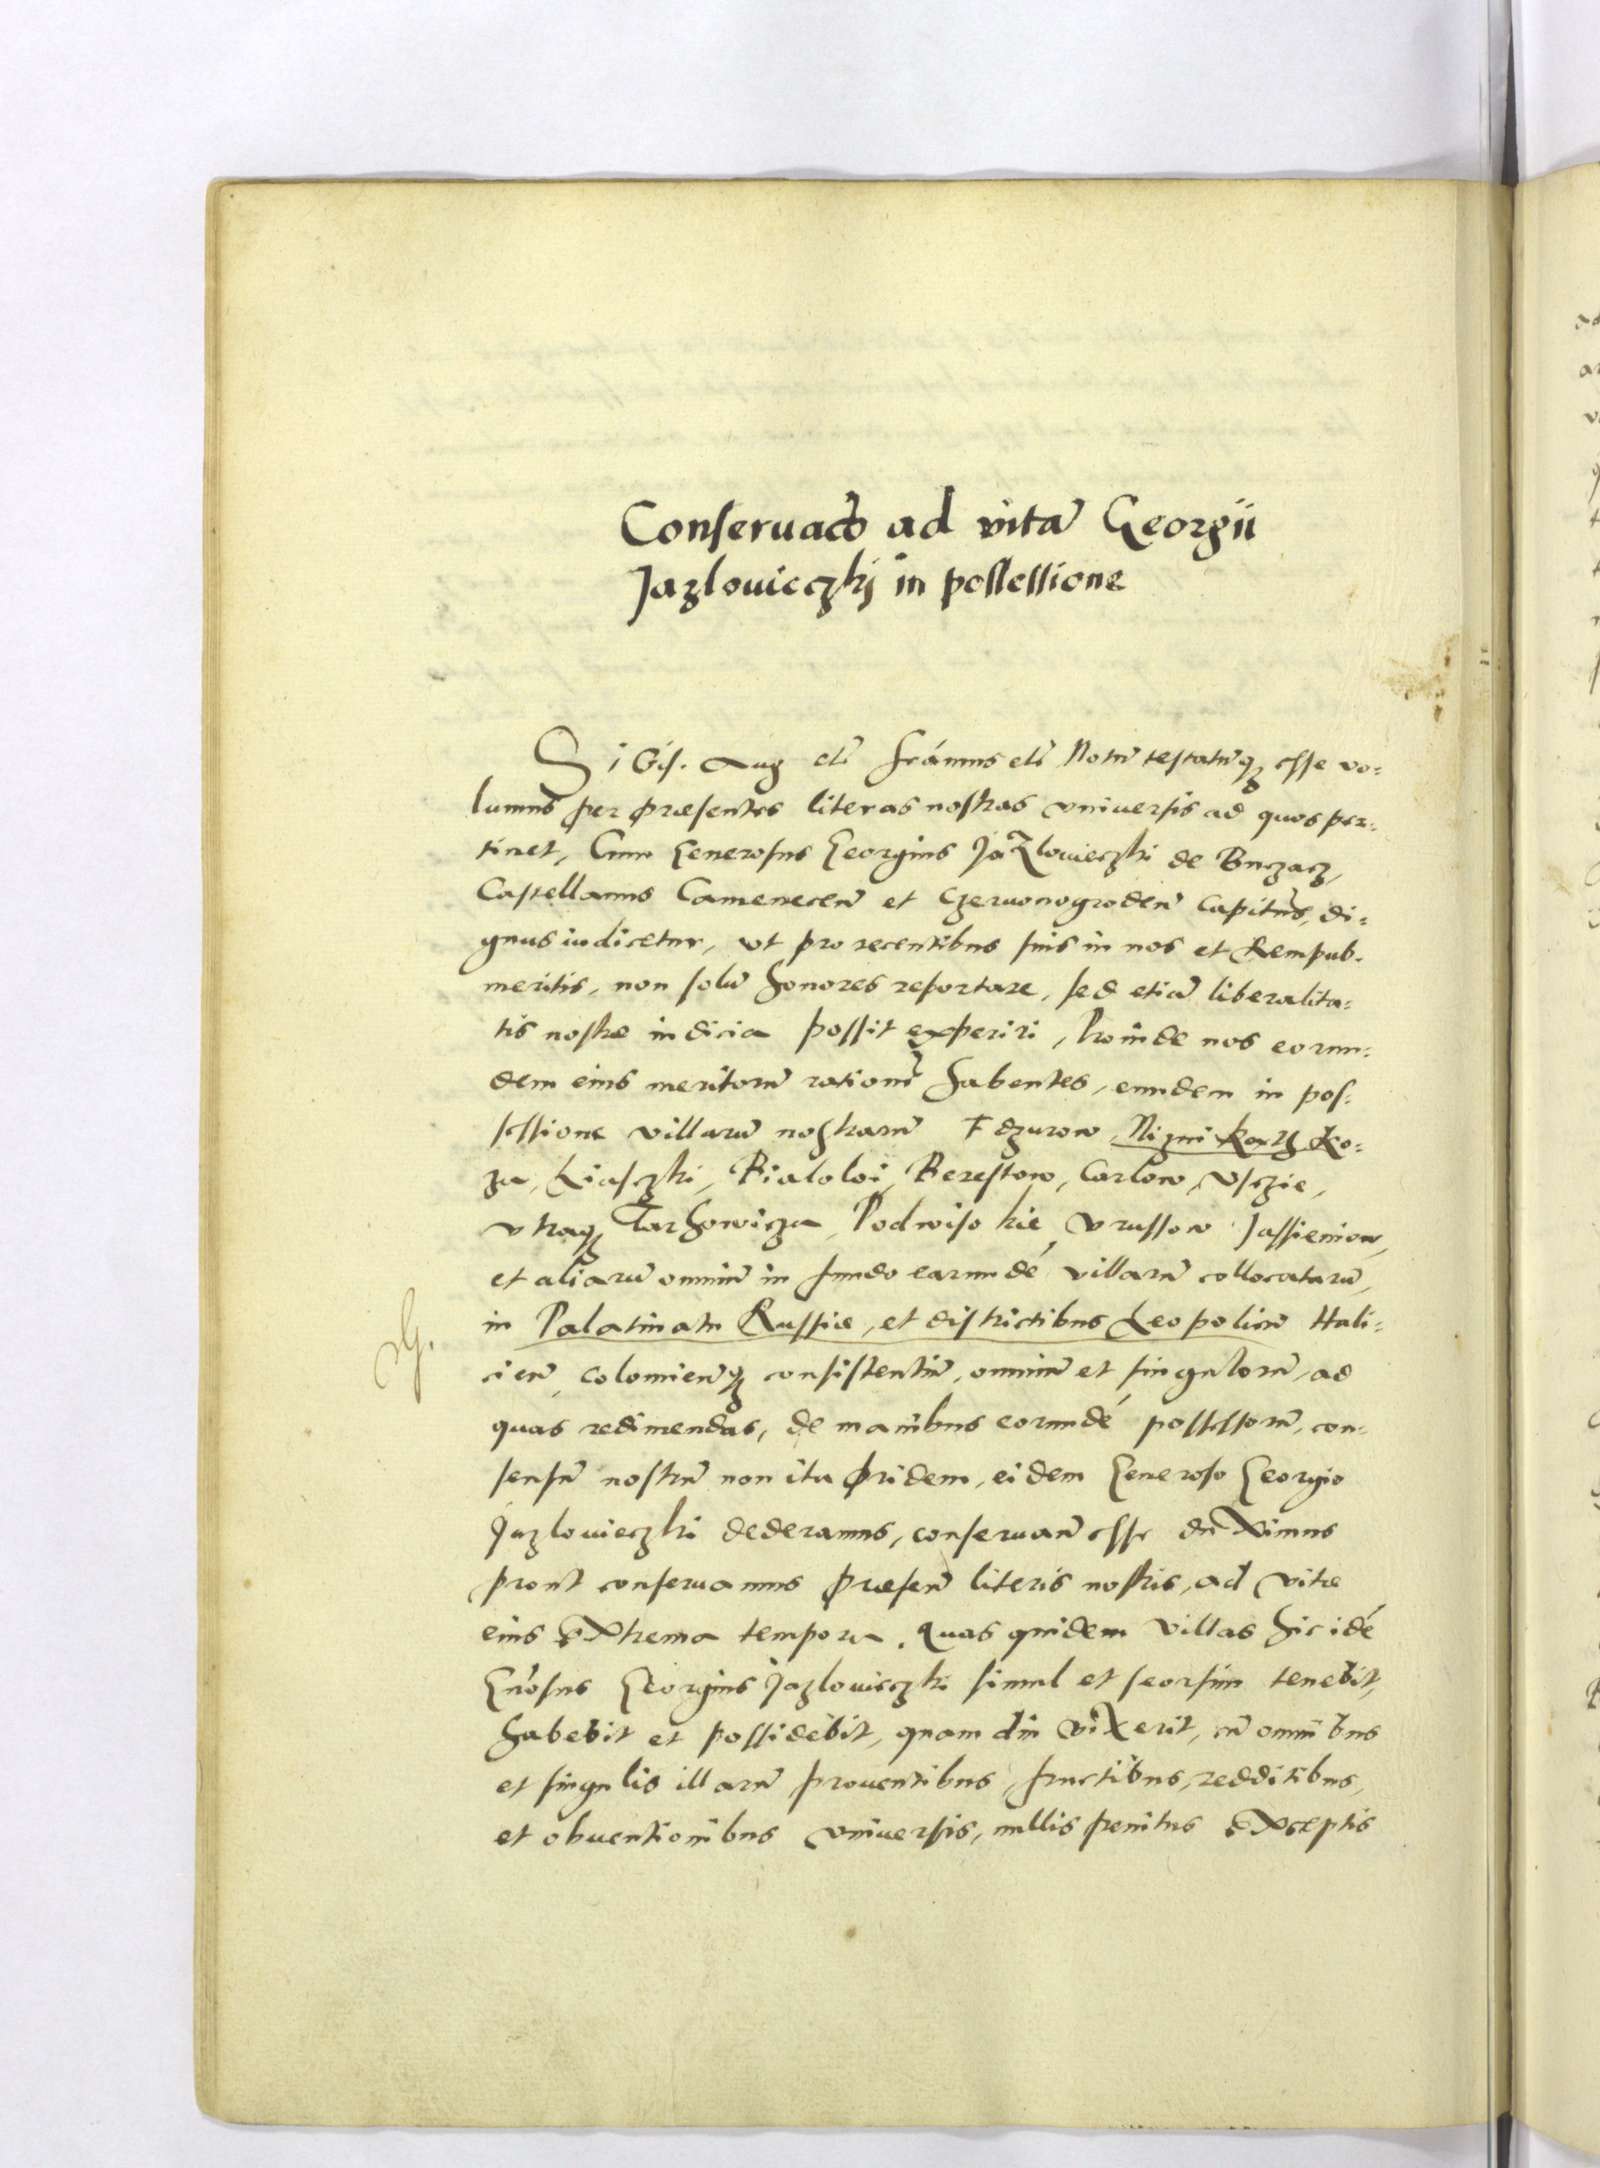 Conseruacō ad vitā Georgii
Jazlowieczkj in possessione
SiGis. Aug etc̄ Seámus etc̄ Notū testatūq̨ esse vo=
lumus per præsentes literas nostras vniuersis ad quos per=
tinet, Cum Generosus Georgius Jazlowieczki de Buczacz,
Castellanus Camenecen̄ et Czerwonogroden̄ Capitn̄s, di=
gnus iudicetur, vt pro recentibus suis in nos et Rempub.
meritis, non solū honores reportare, sed etiā liberalita=
tis nostræ indicia possit experiri, Proinde nos eorun=
dem eius meritorū rationē habentes, eundem in pos=
sessione villarū nostrarū Fdzurow Nizni Ko=
za, Liasczki, Bialoloi, Berestow, Carlow, Vsczie,
vtraq̨ Targowicza, Podwisokie Vrussow Jassieniow,
et aliarū omniū in fundo earundé villarū collocatarū,
in Palatinatu Russiæ, et districtibus Leopolien̄ Hali=
cien̄, Colomien̄q̨ consistentiū, omniū et singulorū, ad
quas redimendas, de manibus eorundé possessorū, con=
sensū nostrū non ita pridem, eidem Generoso Georgio
Jazlowieczki dederamus, conseruan̄ esse dūximus
prout conseruamus præsen̄ literis nostris, ad vitæ
eius extrema tempora. Quas quidem villas hic idé
Gn̄osus Georgius Jazlowieczki simul et seorsim tenebit,
habebit et possidebit, quam diu vixerit, cū omnibus
et singulis illarū prouentibus, fructibus, redditibus,
et obuentionibus vniuersis, nullis penitus exceptis